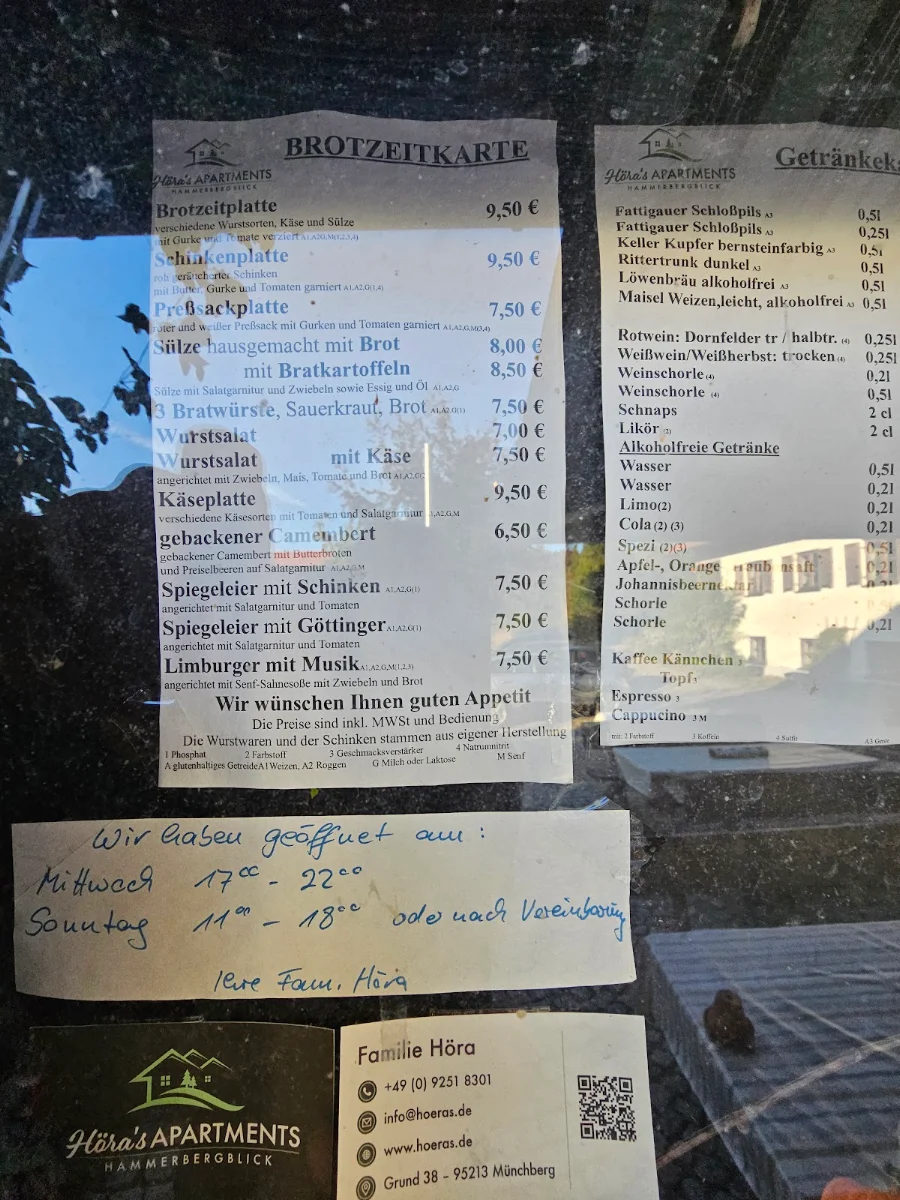 Höra's APARTMENTS
HAMMERBERGBLICK
BROTZEITKARTE
Brotzeitplatte 9,50 €
verschiedene Wurstsorten, Käse und Sülze
mit Gurke und Tomate verziert
Schinkenplatte 9,50 €
roh geräucherter Schinken
mit Butter, Gurke und Tomaten garniert A1,A2,G(1,4)
Preßsackplatte 7,50 €
roter und weißer Preßsack mit Gurken und Tomaten garniert A1,A2,G,M(3,4)
Sülze hausgemacht mit Brot 8,00 €
mit Bratkartoffeln 8,50 €
Sülze mit Salatgarnitur und Zwiebeln sowie Essig und Öl A1,A2,G
3 Bratwürste, Sauerkraut, Brot A1,A2,G(1) 7,50 €
Wurstsalat 7,00 €
Wurstsalat mit Käse 7,50 €
angerichtet mit Zwiebeln, Mais, Tomate und Brot
Käseplatte 9,50 €
verschiedene Käsesorten mit Tomaten und Salatgarnitur A1,A2,G,M
gebackener Camembert 6,50 €
gebackener Camembert mit Butterbroten
und Preiselbeeren auf Salatgarnitur A1,A2,G,M
Spiegeleier mit Schinken A1,A2,G(1) 7,50 €
angerichtet mit Salatgarnitur und Tomaten
Spiegeleier mit Göttinger A1,A2,G(1) 7,50 €
angerichtet mit Salatgarnitur und Tomaten
Limburger mit Musik A1,A2,G,M(1,2,3) 7,50 €
angerichtet mit Senf-Sahnesoße mit Zwiebeln und Brot
Wir wünschen Ihnen guten Appetit
Die Preise sind inkl. MWSt und Bedienung
Die Wurstwaren und der Schinken stammen aus eigener Herstellung
1 Phosphat 2 Farbstoff 3 Geschmacksverstärker 4 Natrumnitrit
A glutenhaltiges Getreide A1 Weizen, A2 Roggen G Milch oder Laktose M Senf
Höra's APARTMENTS
HAMMERBERGBLICK
Getränkek
Fattigauer Schloßpils A3 0,5l
Fattigauer Schloßpils A3 0,25l
Keller Kupfer bernsteinfarbig A3 0,5l
Rittertrunk dunkel A3 0,5l
Löwenbräu alkoholfrei A3 0,5l
Maisel Weizen,leicht, alkoholfrei A3 0,5l
Rotwein: Dornfelder tr / halbtr. (4) 0,25l
Weißwein/Weißherbst: trocken (4) 0,25l
Weinschorle (4) 0,2l
Weinschorle (4) 0,5l
Schnaps 2 cl
Likör (2) 2 cl
Alkoholfreie Getränke
Wasser 0,5l
Wasser 0,2l
Limo(2) 0,2l
Cola (2) (3) 0,2l
Spezi (2)(3) 0,5l
Apfel-, Orange 0,2l
Schorle
Schorle 0,2l
Kaffee Kännchen 3
Topf 3
Espresso 3
Cappucino 3 M
mit: 2 Farbstoff 3 Koffein 4 Sulfit
Wir haben geöffnet am:
Mittwoch 17°° - 22°°
Sonntag 11°° - 18°° oder nach Vereinbarung
Ihre Fam. Höra
Höra's APARTMENTS
HAMMERBERGBLICK
Familie Höra
+49 (0) 9251 8301
info@hoeras.de
www.hoeras.de
Grund 38 – 95213 Münchberg